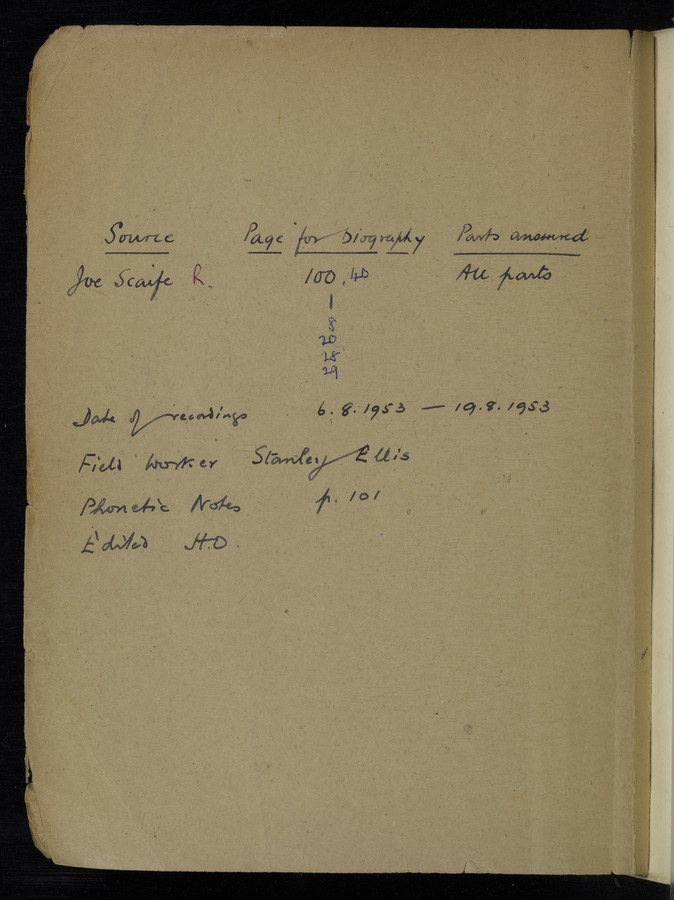 Source Page for biography Parts answered
Joe Scaife R. 100, 40 All parts
8
20
28
29
Date of recordings 6.8.1953 — 19.8.1953
Field Worker Stanley Ellis
Phonetic Notes p. 101
Edited H.O.